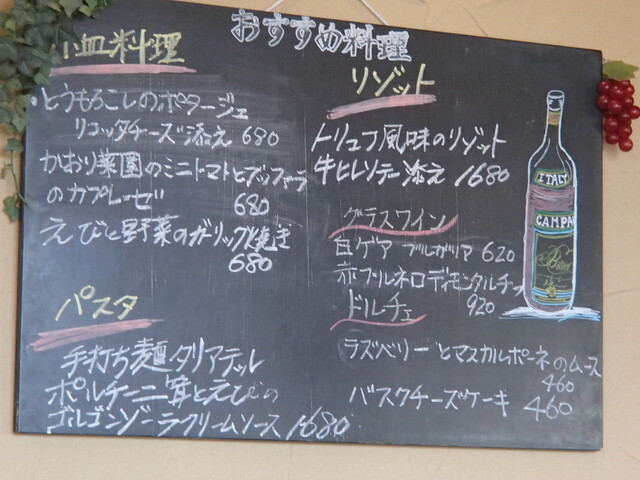 おすすめ料理
小皿料理
とうもろこしのポタージュ
リコッタチーズ添え 680
かおり菜園のミニトマトとブッファラ
のカプレーゼ
680
えびと野菜のガーリック焼き
680
パスタ
手打ち麺タリアテッレ
ポルチーニ茸とえびの
ゴルゴンゾーラクリームソース 1680
リゾット
トリュフ風味のリゾット
牛ヒレソテー添え 1680
グラスワイン
白ゲア ブルガリア 620
赤ブルネロディモンタルチーノ
920
ドルチェ
ラズベリーとマスカルポーネのムース
460
バスクチーズケーキ 460
ITALY
CAMPA